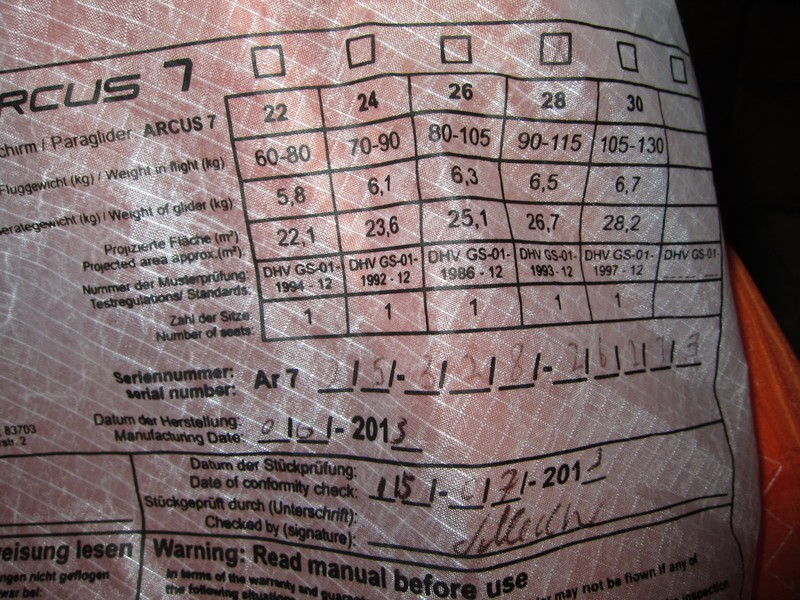 RCUS 7
chirm / Paraglider ARCUS 7 22 24 26 28 30
Fluggewicht (kg) / Weight in flight (kg) 60-80 70-90 80-105 90-115 105-130
erätegewicht (kg) / Weight of glider (kg) 5,8 6,1 6,3 6,5 6,7
Projizierte Fläche (m²):
Projected area approx.(m²): 22,1 23,6 25,1 26,7 28,2
Nummer der Musterprüfung: DHV GS-01- DHV GS-01- DHV GS-01- DHV GS-01- DHV GS-01- DHV GS-01-
Testregulational Standards: 1994 - 12 1992 - 12 1986 - 12 1993 - 12 1997 - 12
Zahl der Sitze:
Number of seats: 1 1 1 1 1
Seriennummer:
serial number: Ar 7
, 83703
str. 2
Datum der Herstellung:
Manufacturing Date: - 2013
Datum der Stückprüfung:
Date of conformity check: 15 - 07 - 201
Stückgeprüft durch (Unterschrift):
Checked by (signature):
eisung lesen
ngen nicht geflogen
war bei:
Warning: Read manual before use
In terms of the warranty and may not be flown if any of
the following inspection